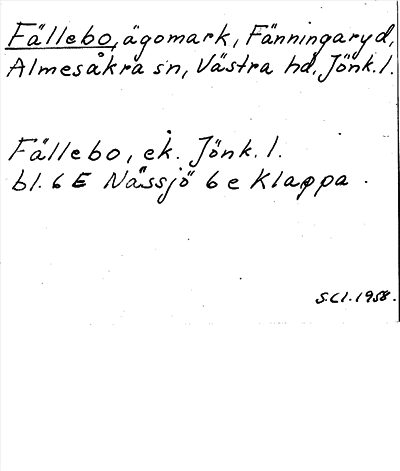 Fällebo, ägomark, Fänningaryd,
Almesåkra sn, Västra hd, Jönk.l.
Fällebo, ek. Jönk.l.
bl. 6 E Nässjö 6 e Klappa.
S.Cl. 1958.